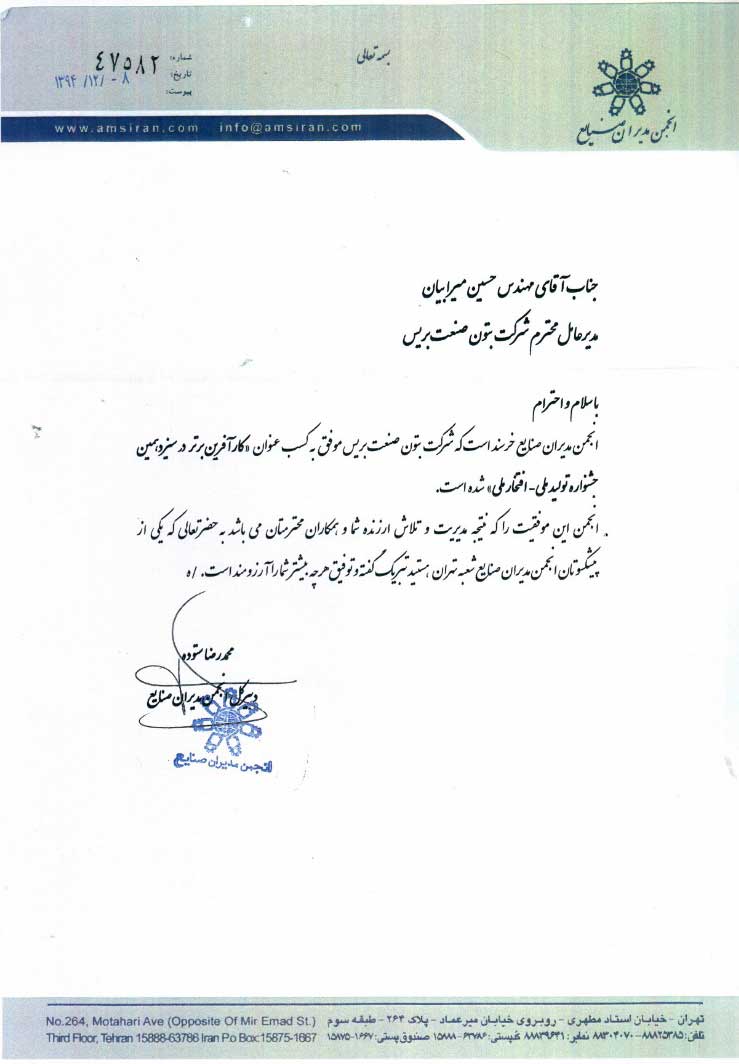 بسمه تعالی
شماره: ٤٧٥٨٢
تاریخ: ۱۳۹۴/۱۲/۰۸
پیوست:
انجمن مدیران صنایع
www.amsiran.com info@amsiran.com
جناب آقای مهندس حسین میرابیان
مدیرعامل محترم شرکت بتون صنعت بریس
باسلام و احترام
انجمن مدیران صنایع خرسند است که شرکت بتون صنعت بریس موفق به کسب عنوان «کارآفرین برتر در سیزدهمین
جشنواره تولید ملی - افتخار ملی» شده است.
انجمن این موفقیت را که نتیجه مدیریت و تلاش ارزنده شما و همکاران محترمتان می باشد به حضرتعالی که یکی از
پیشکسوتان انجمن مدیران صنایع شعبه تهران هستید تبریک گفته و توفیق هرچه بیشتر شما را آرزومند است. /ه
محمدرضا ستوده
دبیرکل انجمن مدیران صنایع
انجمن مدیران صنایع
تهران - خیابان استاد مطهری - روبروی خیابان میرعماد - پلاک ۲۶۴ - طبقه سوم
تلفن: ۸۸۸۲۵۳۸۵ - ۸۸۳۰۴۰۷۰ نمابر: ۸۸۸۳۹۶۴۱ کدپستی: ۶۳۷۸۶-۱۵۸۸۸ صندوق پستی: ۱۶۶۷-۱۵۸۷۵
No.264, Motahari Ave (Opposite Of Mir Emad St.)
Third Floor, Tehran 15888-63786 Iran P.o Box:15875-1667